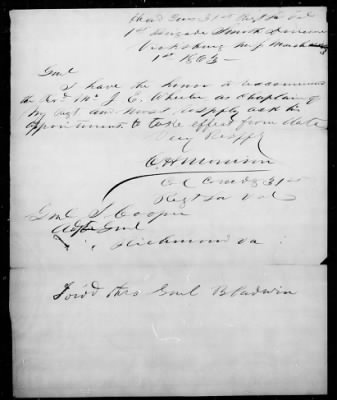 Head Qurs 31st Regt La Vol
1st Brigade Smith Division
Vicksburg Mi March
1st 1863
Genl
I have the honor to recommend
the Revd Mr J. E. Wheeler as Chaplain of
my Regt and most respfly ask his
appointment to take effect from date
Very Respfly
C. H. Morrison
Col Comdg 31st
Regt La Vol
Genl S. Cooper
Adjt Genl
Richmond Va
Forwd thro Genl Baldwin